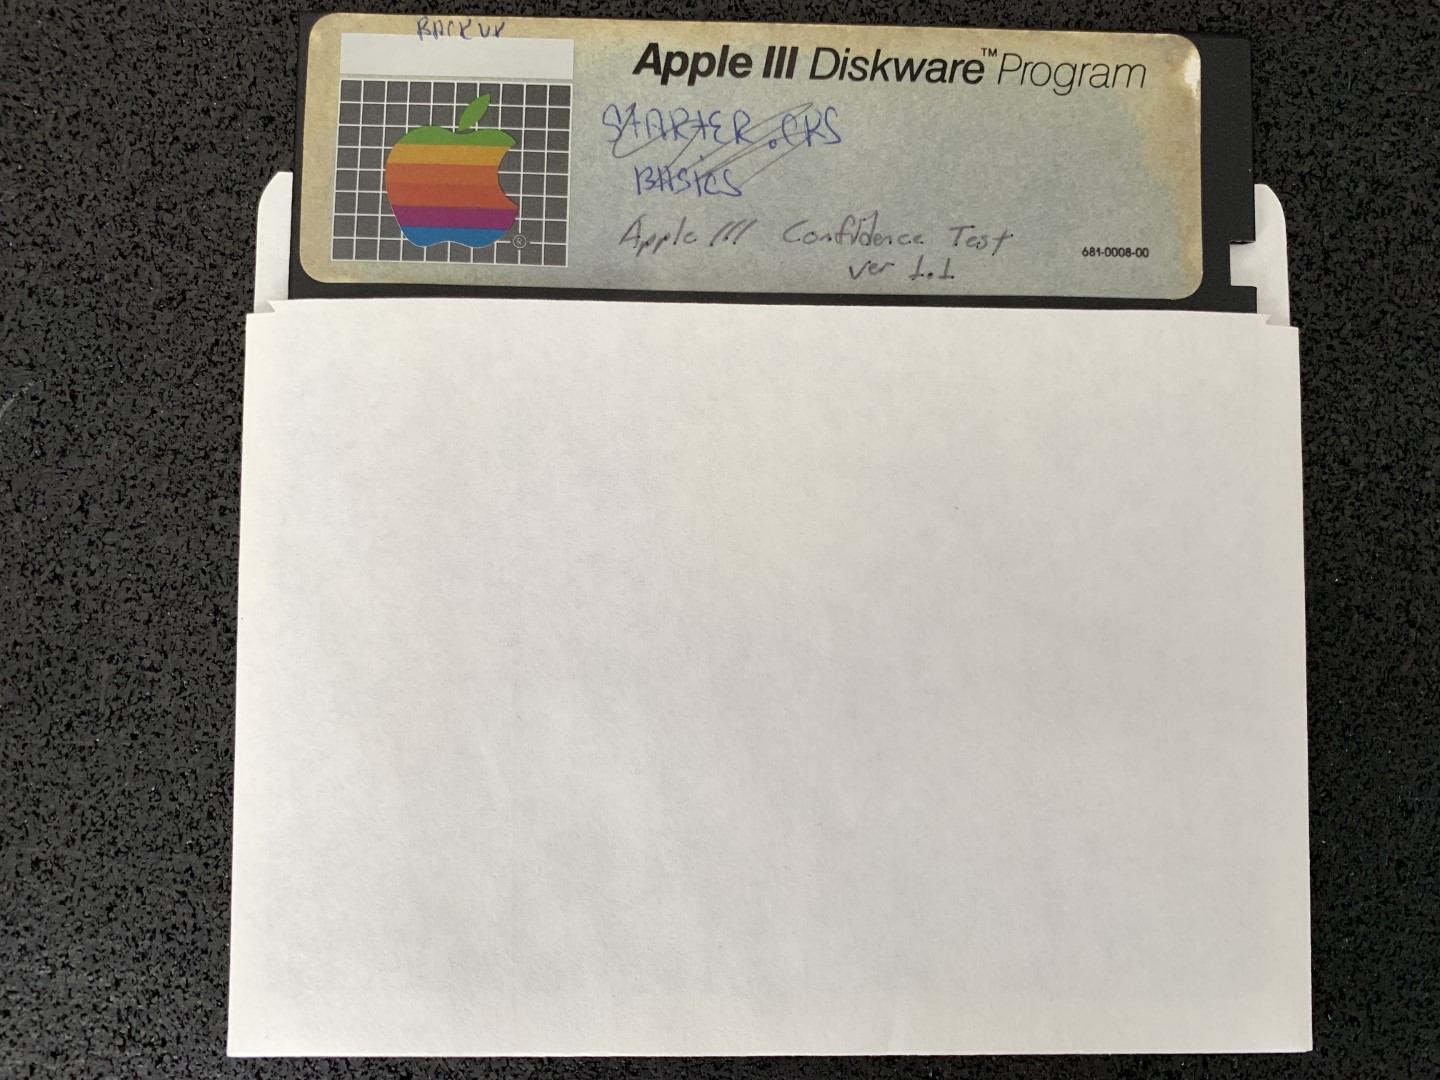 BACKUP
Apple III Diskware™ Program
STARTER.CRS
BASICS
Apple III Confidence Test
ver 1.1
681-0008-00
®